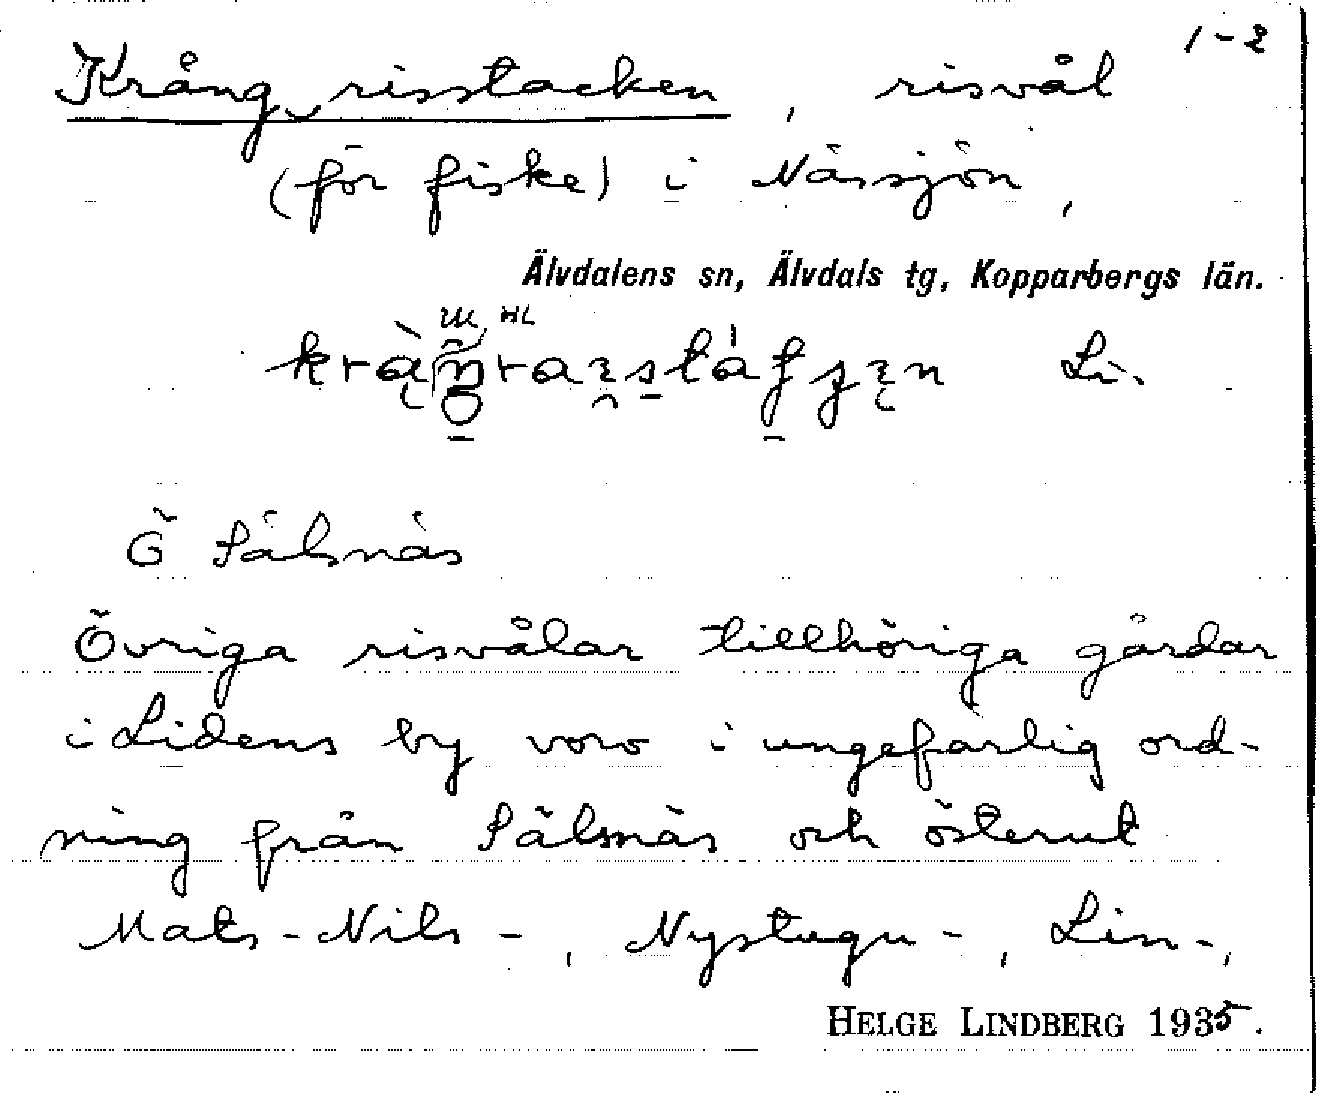 1-2
Krång risstacken, risvål
(för fiske) i Nässjön,
Älvdalens sn, Älvdals tg, Kopparbergs län.
HL
Li.
G Sälsnäs
Övriga risvålar tillhöriga gårdar
i Lidens by voro i ungefärlig ord-
ning från Sälsnäs och österut
Mats-Nils-, Nystugu-, Lin-,
HELGE LINDBERG 1935.